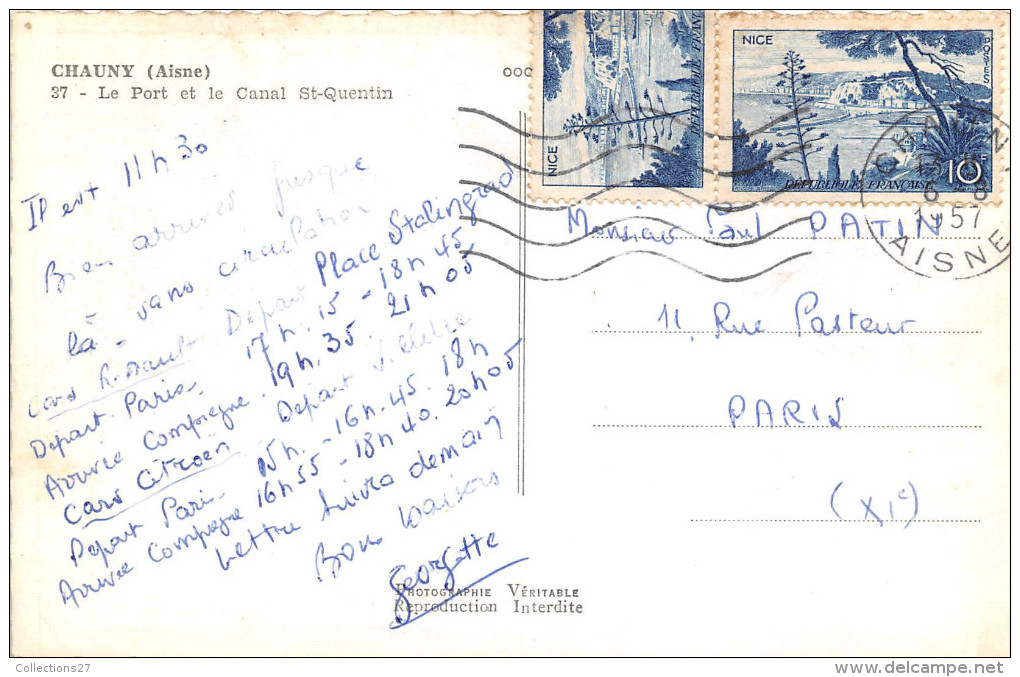 CHAUNY (Aisne)
37 - Le Port et le Canal St-Quentin
Il est 11 h 30
Bien arrivés jusque
là - sans circulation
Cars Renault Départ Place Stalingrad
Départ Paris 17 h. 15 - 18 h 45
Arrivée Compiegne. 19 h. 35. 21 h 05
Cars Citroën Départ Villette
Départ Paris 15 h. - 16 h. 45. 18 h
Arrivée Compiegne 16 h 55 - 18 h 40. 20 h 05
Lettre suivra demain
Bons baisers
Georgette
PHOTOGRAPHIE VÉRITABLE
Reproduction Interdite
NICE
RÉPUBLIQUE FRANÇAISE
NICE
POSTES
10F
RÉPUBLIQUE FRANÇAISE
CHAUNY
6 - 8
1957
AISNE
Monsieur Paul PATIN
11, Rue Pasteur
PARIS
(XIe)
Collections27
delcampe.net